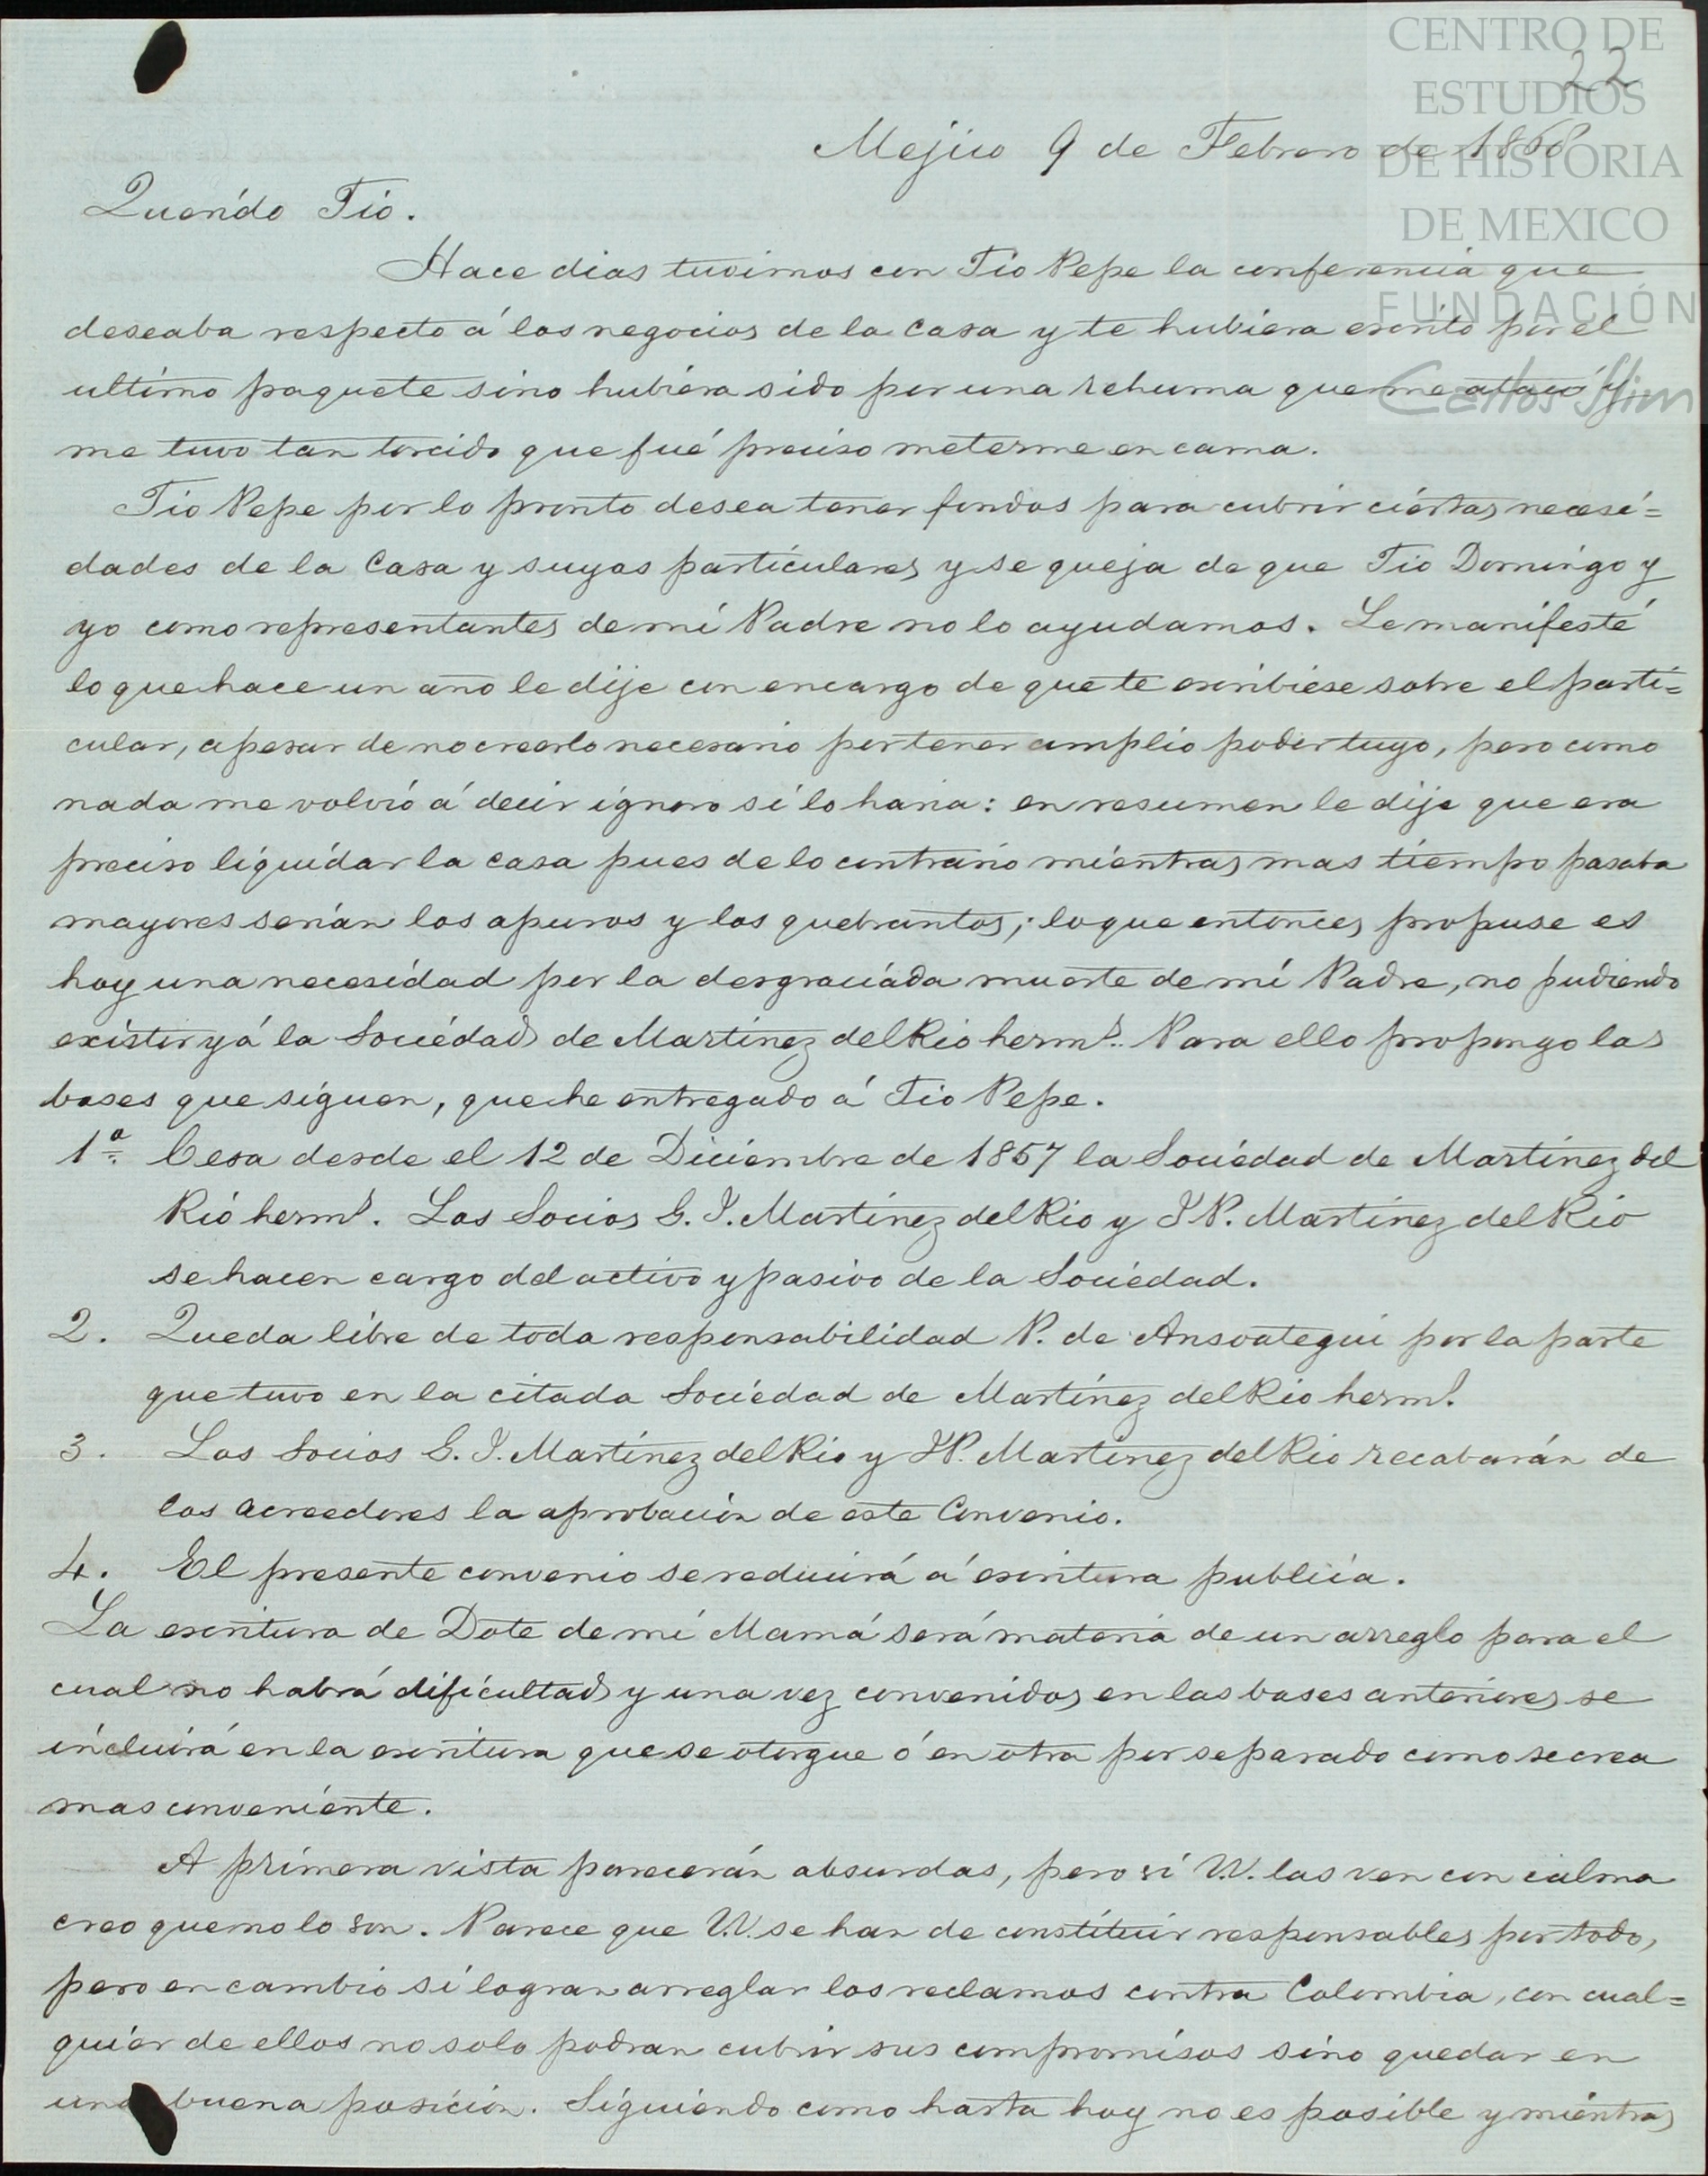 CENTRO DE
ESTUDIOS
DE HISTORIA
DE MEXICO
FUNDACIÓN
Carlos Slim
22
Mejico 9 de Febrero de 1868
Querido Tio.
Hace dias tuvimos con Tio Pepe la conferencia que
deseaba respecto á los negocios de la Casa y te hubiera escrito por el
ultimo paquete sino hubiera sido por una rehuma que me atacó y
me tuvo tan torcido que fué preciso meterme en cama.
Tio Pepe por lo pronto desea tener fondos para cubrir ciertas necesi=
dades de la Casa y suyas particulares y se queja de que Tio Domingo y
yo como representantes de mi Padre no lo ayudamos. Le manifesté
lo que hace un año le dije con encargo de que te escribiese sobre el parti=
cular, apesar de no creerlo necesario por tener amplio poder tuyo, pero como
nada me volvió á decir ignoro si lo haria: en resumen le dije que era
preciso liquidar la casa pues de lo contrario mientras mas tiempo pasaba
mayores serian los apuros y los quebrantos; lo que entonces propuse es
hoy una necesidad por la desgraciada muerte de mi Padre, no pudiendo
existir yá la Sociedad de Martinez del Rio hermˢ. Para ello propongo las
bases que siguen, que he entregado á Tio Pepe.
1ª. Cesa desde el 12 de Diciembre de 1867 la Sociedad de Martinez del
Rio hermˢ. Los Socios G. I. Martinez del Rio y J P. Martinez del Rio
se hacen cargo del activo y pasivo de la Sociedad.
2. Queda libre de toda responsabilidad P. de Ansoategui por la parte
que tuvo en la citada Sociedad de Martinez del Rio hermˢ.
3. Los Socios G. I. Martinez del Rio y J P. Martinez del Rio recabarán de
los acreedores la aprobacion de este Convenio.
4. El presente convenio se reducirá á escritura publica.
La escritura de Dote de mi Mamá será materia de un arreglo para el
cual no habrá dificultad y una vez convenidos en las bases anteriores se
incluirá en la escritura que se otorgue ó en otra por separado como se crea
mas conveniente.
A primera vista parecerán absurdas, pero si V.V. las ven con calma
creo que no lo son. Parece que V.V. se han de constituir responsables por todo,
pero en cambio si logran arreglar los reclamos contra Colombia, con cual=
quier de ellos no solo podran cubrir sus compromisos sino quedar en
una buena posicion. Siguiendo como hasta hoy no es posible y mientras